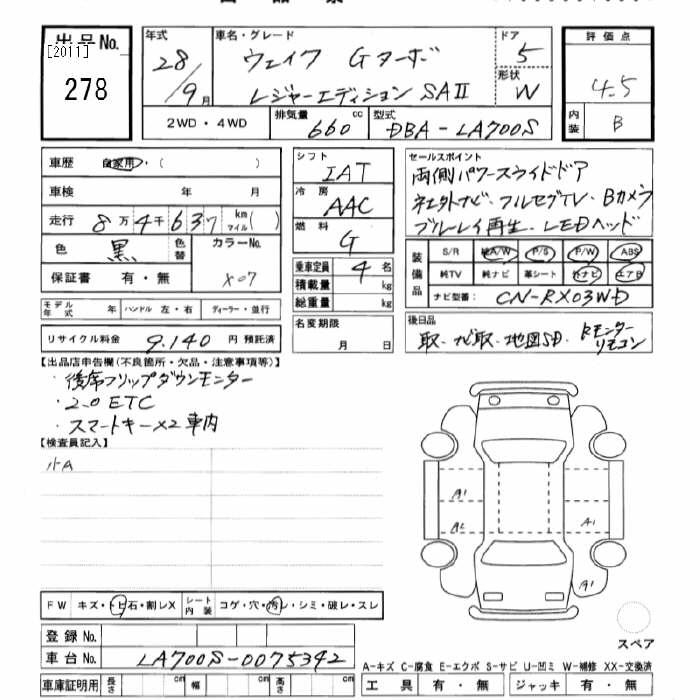 出品No.
[2011]
278
年式 28/9月
車名・グレード ウェイク Gターボ
レジャーエディション SAII
ドア 5
形状 W
2WD・4WD
排気量 660 cc
型式 DBA-LA700S
評価点 4.5
内装 B
車歴 自家用・( )
車検 年 月
走行 8万4千637 km マイル( )
色 黒 色替 カラーNo. X07
保証書 有・無
モデル年式 年 ハンドル 左・右 ディーラー・並行
リサイクル料金 9,140円 預託済
シフト IAT
冷房 AAC
燃料 G
乗車定員 4名
積載量 kg
総重量 kg
名変期限 月 日
セールスポイント
両側パワースライドドア
社外ナビ・フルセグTV・Bカメラ
ブルーレイ再生・LEDヘッド
装備品 S/R 純A/W P/S P/W ABS
純TV 純ナビ 革シート 外ナビ エアB
ナビ型番: CN-RX03WD
後日品
取・ナビ取・地図SD・Rモニターリモコン
【出品店申告欄(不良箇所・欠品・注意事項等)】
・後席フリップダウンモニター
・2.0 ETC
・スマートキー×2 車内
【検査員記入】
小A
A1
A2
A1
A1
FW キズ・トビ石・割レX シート内装 コゲ・穴・汚レ・シミ・破レ・スレ
登録No.
車台No. LA700S-0075342
車庫証明用 長さ cm 幅 cm 高さ cm
スペア
A-キズ C-腐食 E-エクボ S-サビ U-凹ミ W-補修 XX-交換済
工具 有・無 ジャッキ 有・無